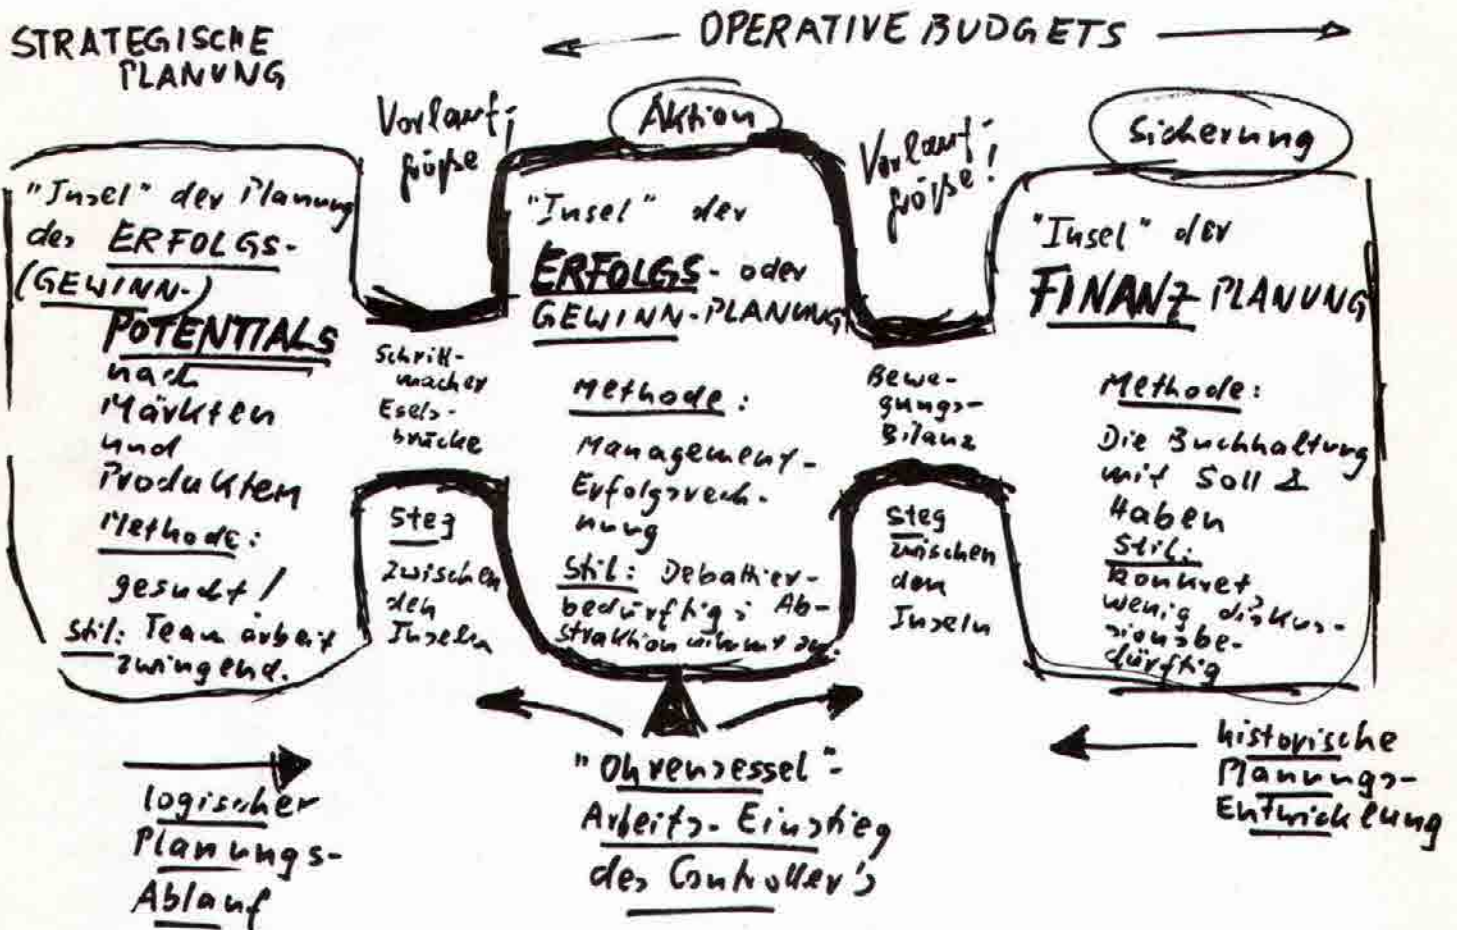 STRATEGISCHE
PLANUNG
OPERATIVE BUDGETS
"Insel" der Planung
des ERFOLGS-
(GEWINN-)
POTENTIALS
nach
Märkten
und
Produkten
Methode:
gesucht!
Stil: Teamarbeit
zwingend.
Vorlauf-
größe!
Schritt-
macher
Esels-
brücke
Steg
zwischen
den
Inseln
Aktion
"Insel" der
ERFOLGS- oder
GEWINN-PLANUNG
Methode:
Management-
Erfolgsrech-
nung
Stil: Debattier-
bedürftig; Ab-
straktion nimmt zu.
Vorlauf-
größe!
Bewe-
gungs-
Bilanz
Steg
zwischen
den
Inseln
Sicherung
"Insel" der
FINANZ-PLANUNG
Methode:
Die Buchhaltung
mit Soll &
Haben
Stil:
Konkret
wenig diskus-
sionsbe-
dürftig
logischer
Planungs-
Ablauf
"Ohrensessel"-
Arbeits-Einstieg
des Controller's
historische
Planungs-
Entwicklung